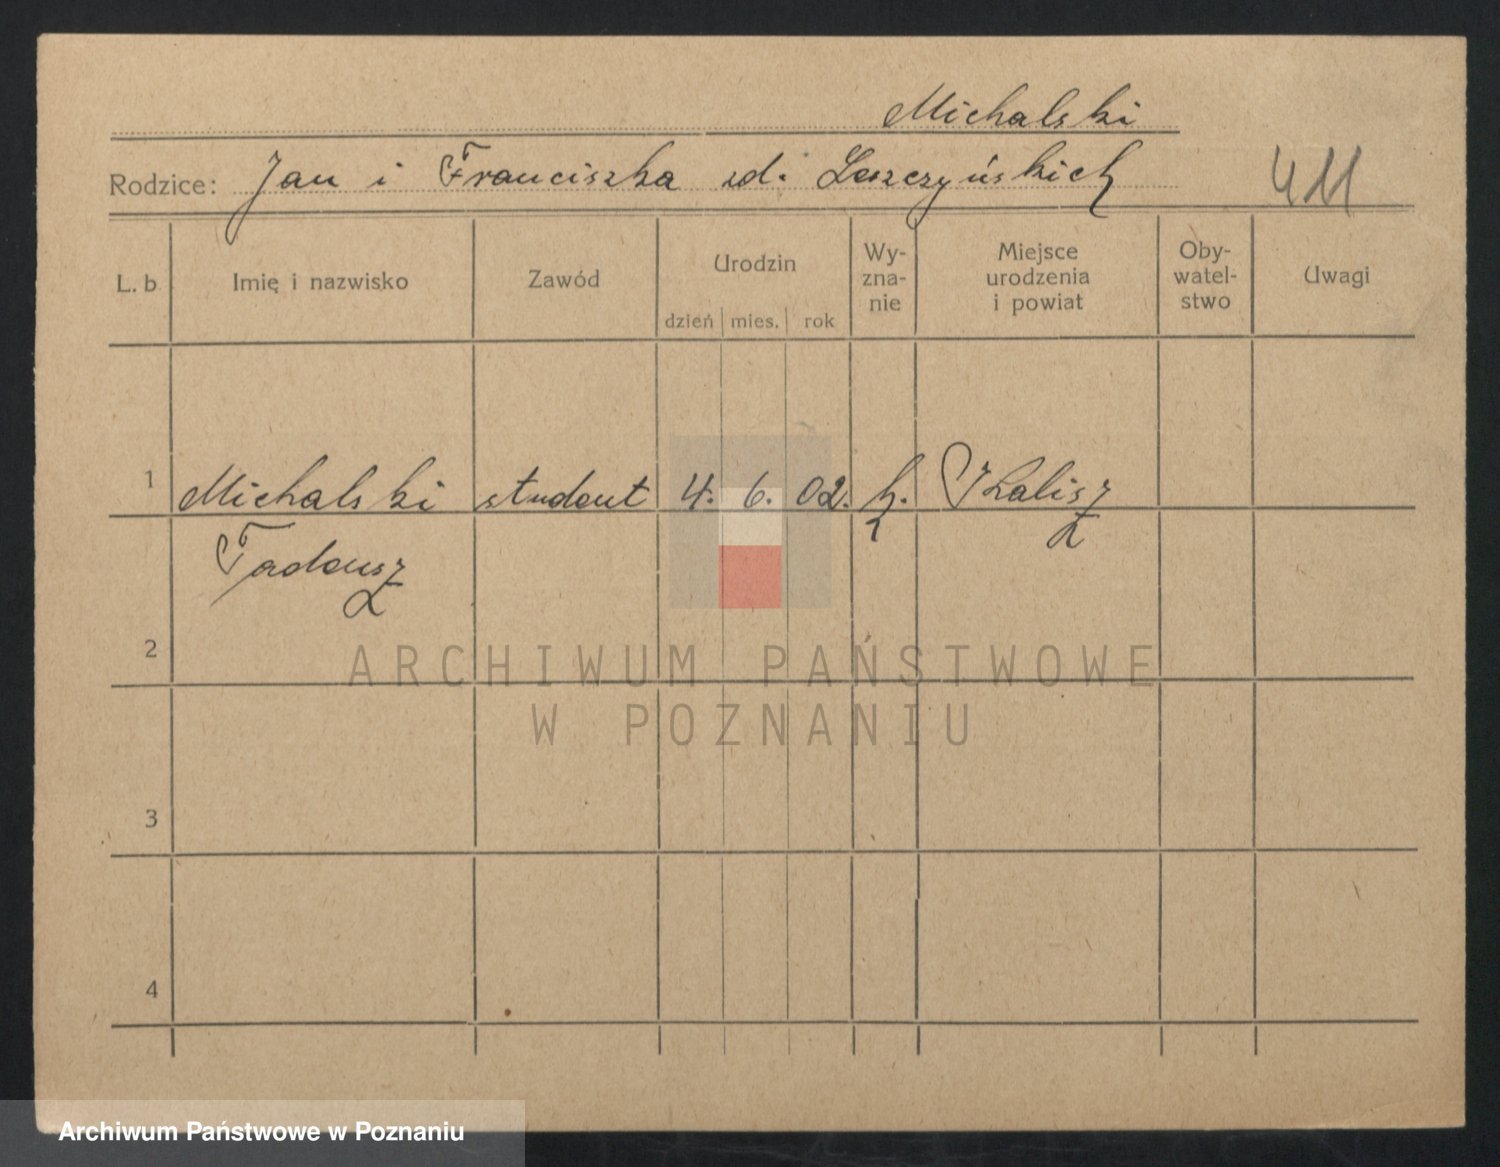 Michalski
Rodzice: Jan i Franciszka zd. Leszczyńskich
411
L. b Imię i nazwisko Zawód Urodzin Wy-zna-nie Miejsce urodzenia i powiat Oby-watel-stwo Uwagi
dzień mies. rok
1 Michalski student 4. 6. 02. k. Kalisz
Tadeusz
2
ARCHIWUM PAŃSTWOWE
W POZNANIU
3
4
Archiwum Państwowe w Poznaniu